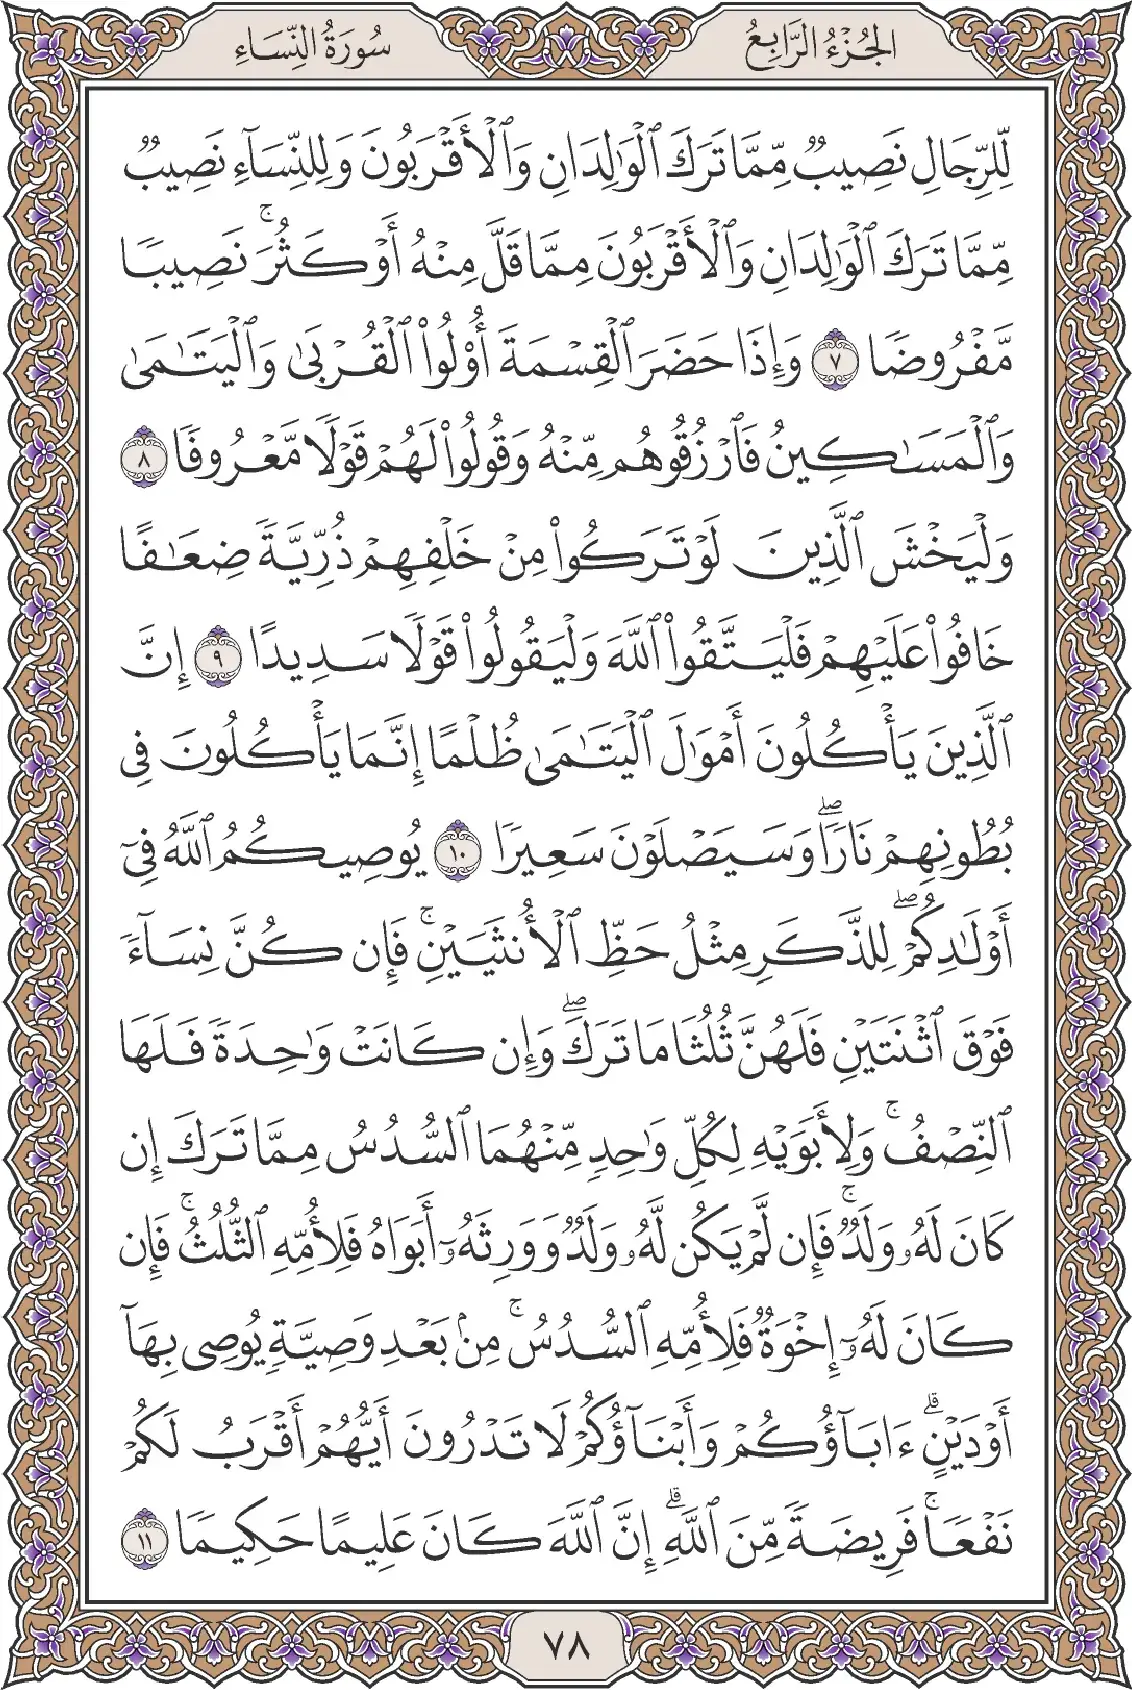 الجُزْءُ الرَّابِعُ
سُورَةُ النِّسَاءِ
لِّلرِّجَالِ نَصِيبٌ مِّمَّا تَرَكَ ٱلْوَٰلِدَانِ وَٱلْأَقْرَبُونَ وَلِلنِّسَآءِ نَصِيبٌ
مِّمَّا تَرَكَ ٱلْوَٰلِدَانِ وَٱلْأَقْرَبُونَ مِمَّا قَلَّ مِنْهُ أَوْ كَثُرَ ۚ نَصِيبًا
مَّفْرُوضًا ٧ وَإِذَا حَضَرَ ٱلْقِسْمَةَ أُو۟لُوا۟ ٱلْقُرْبَىٰ وَٱلْيَتَٰمَىٰ
وَٱلْمَسَٰكِينُ فَٱرْزُقُوهُم مِّنْهُ وَقُولُوا۟ لَهُمْ قَوْلًا مَّعْرُوفًا ٨
وَلْيَخْشَ ٱلَّذِينَ لَوْ تَرَكُوا۟ مِنْ خَلْفِهِمْ ذُرِّيَّةً ضِعَٰفًا
خَافُوا۟ عَلَيْهِمْ فَلْيَتَّقُوا۟ ٱللَّهَ وَلْيَقُولُوا۟ قَوْلًا سَدِيدًا ٩ إِنَّ
ٱلَّذِينَ يَأْكُلُونَ أَمْوَٰلَ ٱلْيَتَٰمَىٰ ظُلْمًا إِنَّمَا يَأْكُلُونَ فِى
بُطُونِهِمْ نَارًا ۖ وَسَيَصْلَوْنَ سَعِيرًا ١٠ يُوصِيكُمُ ٱللَّهُ فِىٓ
أَوْلَٰدِكُمْ ۖ لِلذَّكَرِ مِثْلُ حَظِّ ٱلْأُنثَيَيْنِ ۚ فَإِن كُنَّ نِسَآءً
فَوْقَ ٱثْنَتَيْنِ فَلَهُنَّ ثُلُثَا مَا تَرَكَ ۖ وَإِن كَانَتْ وَٰحِدَةً فَلَهَا
ٱلنِّصْفُ ۚ وَلِأَبَوَيْهِ لِكُلِّ وَٰحِدٍ مِّنْهُمَا ٱلسُّدُسُ مِمَّا تَرَكَ إِن
كَانَ لَهُۥ وَلَدٌ ۚ فَإِن لَّمْ يَكُن لَّهُۥ وَلَدٌ وَوَرِثَهُۥٓ أَبَوَاهُ فَلِأُمِّهِ ٱلثُّلُثُ ۚ فَإِن
كَانَ لَهُۥٓ إِخْوَةٌ فَلِأُمِّهِ ٱلسُّدُسُ ۚ مِنۢ بَعْدِ وَصِيَّةٍ يُوصِى بِهَآ
أَوْ دَيْنٍ ۗ ءَابَآؤُكُمْ وَأَبْنَآؤُكُمْ لَا تَدْرُونَ أَيُّهُمْ أَقْرَبُ لَكُمْ
نَفْعًا ۚ فَرِيضَةً مِّنَ ٱللَّهِ ۗ إِنَّ ٱللَّهَ كَانَ عَلِيمًا حَكِيمًا ١١
٧٨